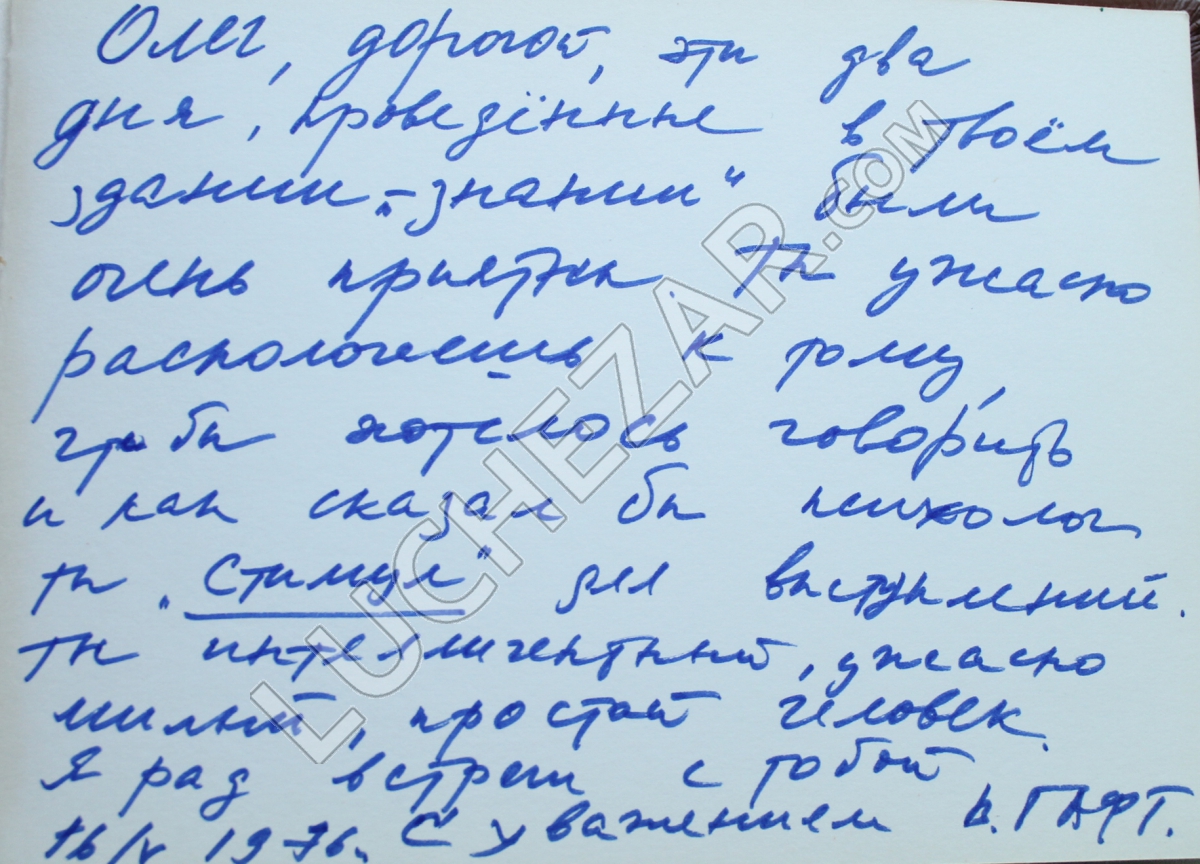 Олег, дорогой, эти два
дня, проведённые в твоём
здании „-знании“ были
очень приятны. Ты ужасно
расположешь к тому,
чтобы хотелось говорить
и как сказал бы психолог
ты „стимул“ для выступлений.
ты интеллигентный, ужасно
милый, простой человек.
Я рад встречи с тобой
16/V 1976. С уважением В. ГАФТ.
LUCHEZAR.COM